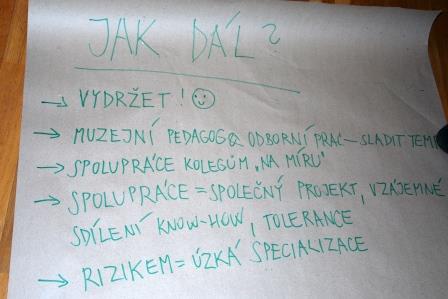 JAK DÁL?
→ VYDRŽET! ☺
→ MUZEJNÍ PEDAGOG & ODBORNÍ PRAC – SLADIT
→ SPOLUPRÁCE KOLEGŮM „NA MÍRU"
→ SPOLUPRÁCE = SPOLEČNÝ PROJEKT, VZÁJEMNÉ
SDÍLENÍ KNOW-HOW, TOLERANCE
→ RIZIKEM = ÚZKÁ SPECIALIZACE